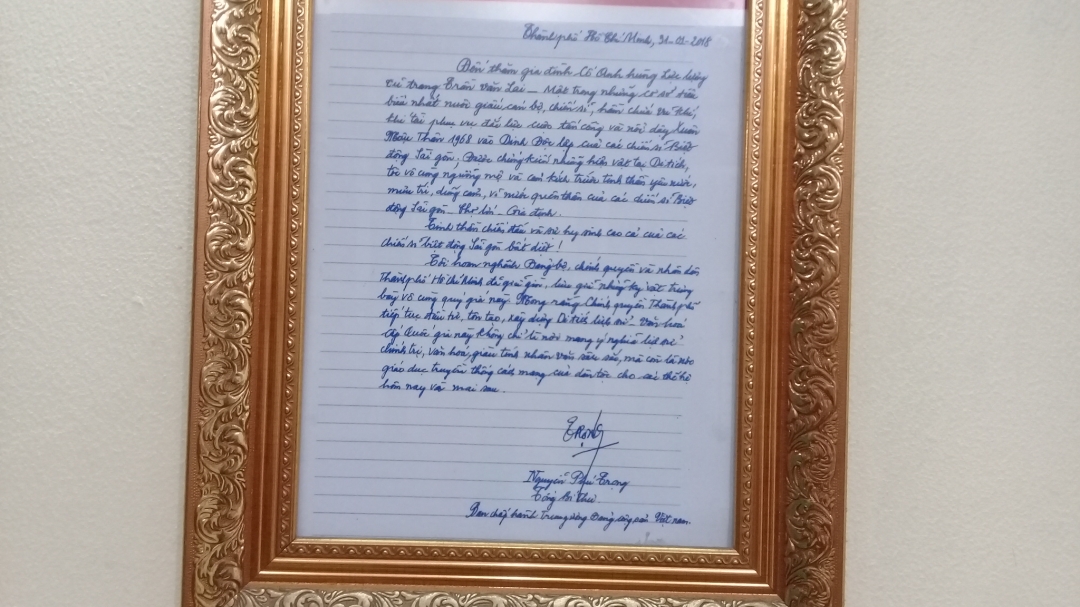 Thành phố Hồ Chí Minh, 31-01-2018
Đến thăm gia đình Cố Anh hùng Lực lượng
vũ trang Trần Văn Lai – Một trong những cơ sở tiêu
biểu nhất nuôi giấu cán bộ, chiến sĩ, hầm chứa vũ khí,
khí tài phục vụ đắc lực cuộc tấn công và nổi dậy Xuân
Mậu Thân 1968 vào Dinh Độc lập của các chiến sĩ Biệt
động Sài gòn; Được chứng kiến những hiện vật tại Di tích,
tôi vô cùng ngưỡng mộ và cảm kích trước tinh thần yêu nước,
mưu trí, dũng cảm, vì nước quên thân của các chiến sĩ Biệt
động Sài gòn – Chợ lớn – Gia định.
Tinh thần chiến đấu và sự hy sinh cao cả của các
chiến sĩ biệt động Sài gòn bất diệt!
Tôi hoan nghênh Đảng bộ, chính quyền và nhân dân
Thành phố Hồ Chí Minh đã giữ gìn, lưu giữ những kỷ vật trưng
bày vô cùng quý giá này. Mong rằng Chính quyền Thành phố
tiếp tục đầu tư, tôn tạo, xây dựng Di tích lịch sử – Văn hoá
cấp Quốc gia này không chỉ là nơi mang ý nghĩa lịch sử
chính trị, văn hoá, giàu tính nhân văn sâu sắc, mà còn là nơi
giáo dục truyền thống cách mạng của dân tộc cho các thế hệ
hôm nay và mai sau.
TRỌNG
Nguyễn Phú Trọng
Tổng Bí Thư
Ban chấp hành trung ương Đảng cộng sản Việt nam.